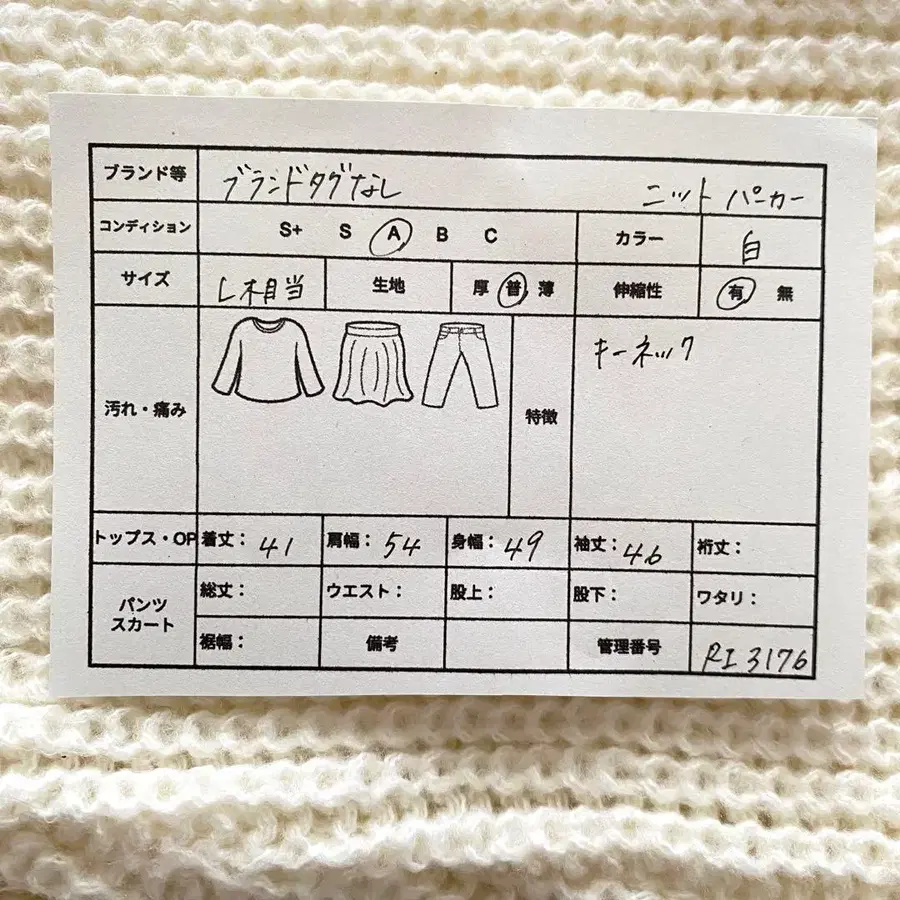 ブランド等 ブランドタグなし ニットパーカー
コンディション S+ S A B C カラー 白
サイズ L相当 生地 厚 普 薄 伸縮性 有 無
汚れ・痛み 特徴 キーネック
トップス・OP 着丈: 41 肩幅: 54 身幅: 49 袖丈: 46 裄丈:
パンツ
スカート
総丈: ウエスト: 股上: 股下: ワタリ:
裾幅: 備考 管理番号 RI3176